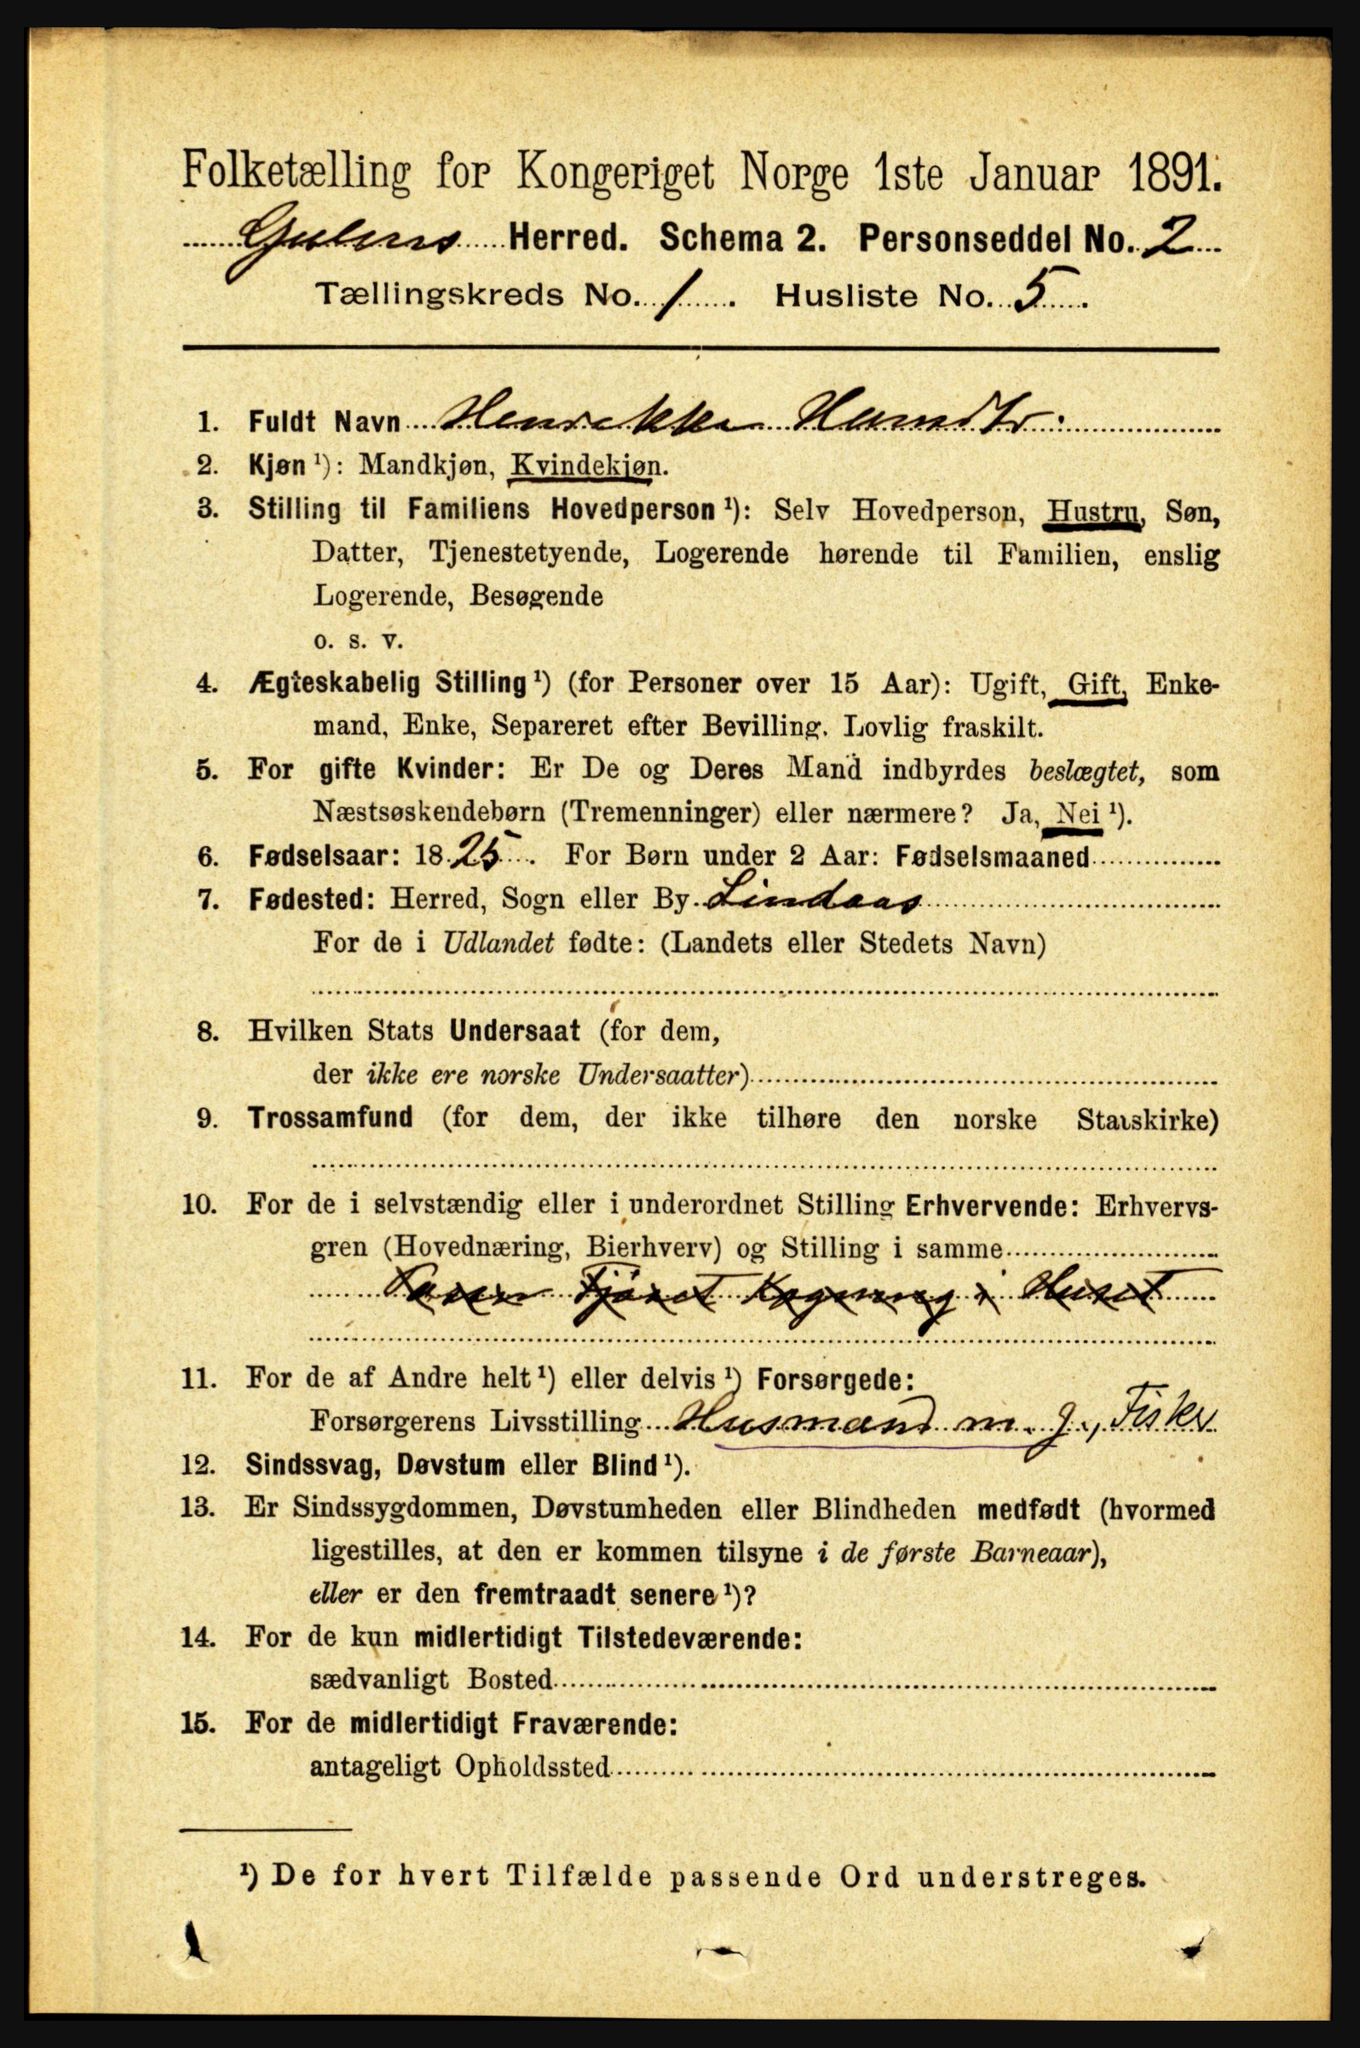 Folketælling for Kongeriget Norge 1ste Januar 1891.
Gulens Herred. Schema 2. Personseddel No. 2
Tællingskreds No. 1. Husliste No. 5.
1. Fuldt Navn Henrikke Hansdtr.
2. Kjøn ¹): Mandkjøn, Kvindekjøn.
3. Stilling til Familiens Hovedperson ¹): Selv Hovedperson, Hustru, Søn,
Datter, Tjenestetyende, Logerende hørende til Familien, enslig
Logerende, Besøgende
o. s. v.
4. Ægteskabelig Stilling ¹) (for Personer over 15 Aar): Ugift, Gift, Enke-
mand, Enke, Separeret efter Bevilling. Lovlig fraskilt.
5. For gifte Kvinder: Er De og Deres Mand indbyrdes beslægtet, som
Næstsøskendebørn (Tremenninger) eller nærmere? Ja, Nei ¹).
6. Fødselsaar: 1825. For Børn under 2 Aar: Fødselsmaaned
7. Fødested: Herred, Sogn eller By Lindaas
For de i Udlandet fødte: (Landets eller Stedets Navn)
8. Hvilken Stats Undersaat (for dem,
der ikke ere norske Undersaatter)
9. Trossamfund (for dem, der ikke tilhøre den norske Statskirke)
10. For de i selvstændig eller i underordnet Stilling Erhvervende: Erhvervs-
gren (Hovednæring, Bierhverv) og Stilling i samme
Fjøset Kogning i Huset
11. For de af Andre helt ¹) eller delvis ¹) Forsørgede:
Forsørgerens Livsstilling Husmand m. j., Fisker
12. Sindssvag, Døvstum eller Blind ¹).
13. Er Sindssygdommen, Døvstumheden eller Blindheden medfødt (hvormed
ligestilles, at den er kommen tilsyne i de første Barneaar),
eller er den fremtraadt senere ¹)?
14. For de kun midlertidigt Tilstedeværende:
sædvanligt Bosted
15. For de midlertidigt Fraværende:
antageligt Opholdssted
¹) De for hvert Tilfælde passende Ord understreges.